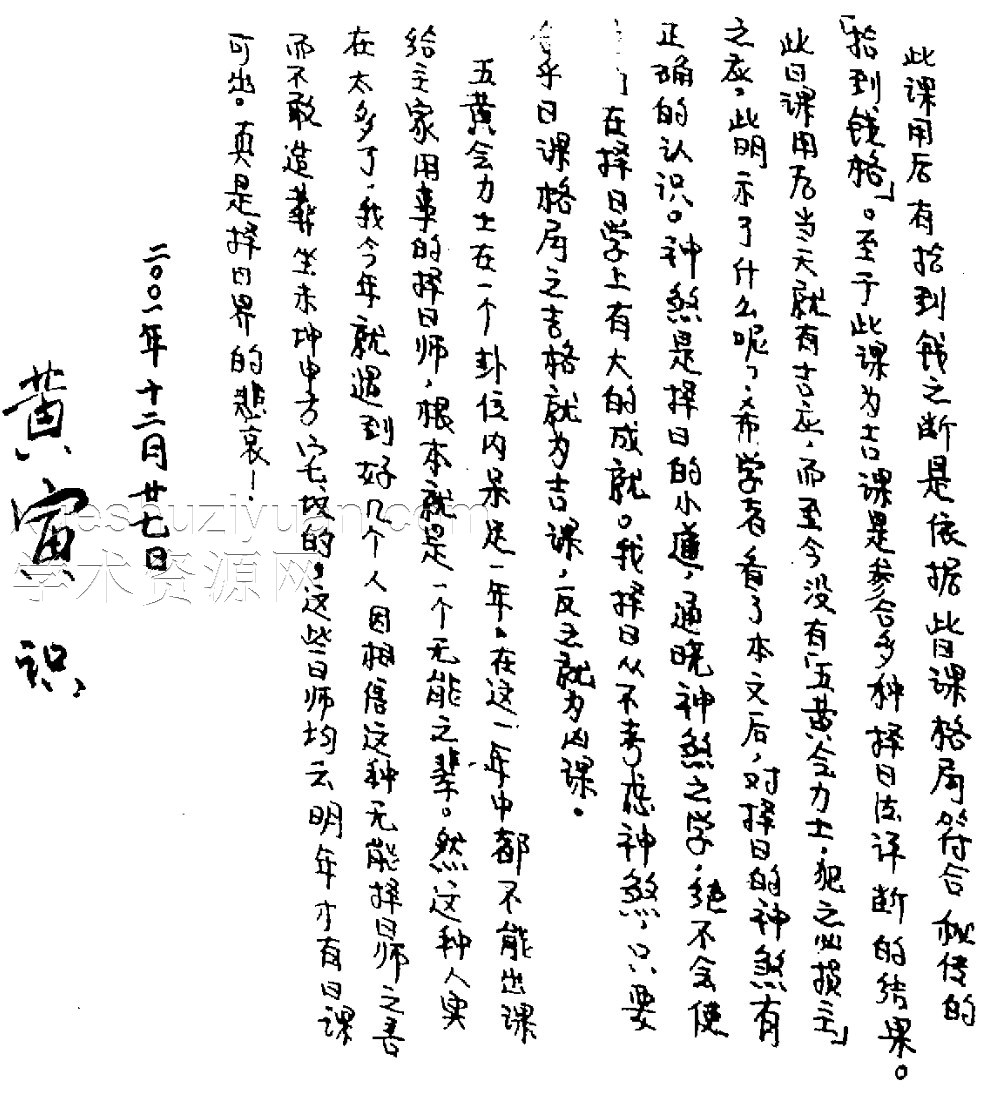 此课用后有拾到钱之断是依据此日课格局符合秘传的
「拾到钱格」。至于此课为吉课是参合多种择日法详断的结果。
此日课用后当天就有吉应，而至今没有「五黄会力士，犯之必损主」
之应。此明示了什么呢？希学者看了本文后，对择日的神煞有
正确的认识。神煞是择日的小道，通晓神煞之学，绝不会使
在择日学上有大的成就。我择日从不考虑神煞，只要
合乎日课格局之吉格就为吉课，反之就为凶课。
五黄会力士在一个卦位内呆足一年。在这一年中都不能出课
给主家用事的择日师，根本就是一个无能之辈。然这种人实
在太多了，我今年就遇到好几个人因相信这种无能择日师之言
而不敢造葬坐未坤申方宅坟的，这些日师均云明年才有日课
可出。真是择日界的悲哀！
二00一年十二月廿七日
黄寅识
eshuziyuan.com
学术资源网